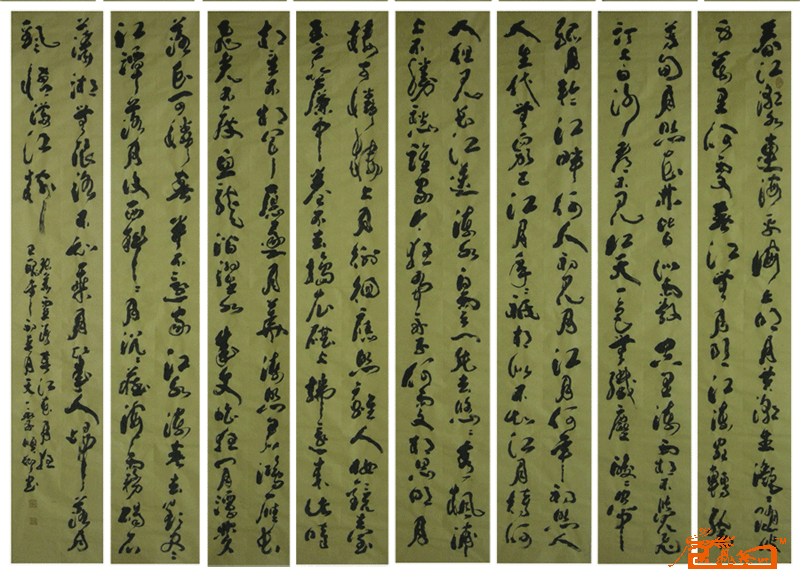 春江潮水連海平海上明月共潮生灩灩隨波
千萬里何處春江無月明江流宛轉繞
芳甸月照花林皆似霰空里流霜不覺飛
汀上白沙看不見江天一色無纖塵皎皎空中
孤月輪江畔何人初見月江月何年初照人
人生代代無窮已江月年年祇相似不知江月待何
人但見長江送流水白雲一片去悠悠青楓浦
上不勝愁誰家今夜扁舟子何處相思明月
樓可憐樓上月徘徊應照離人妝鏡臺
玉戶簾中卷不去搗衣砧上拂還來此時
相望不相聞願逐月華流照君鴻雁長
飛光不度魚龍潛躍水成文昨夜閒潭夢
落花可憐春半不還家江水流春去欲盡
江潭落月復西斜斜月沉沉藏海霧碣石
瀟湘無限路不知乘月幾人歸落月
搖情滿江樹
張若虛詩春江花月夜